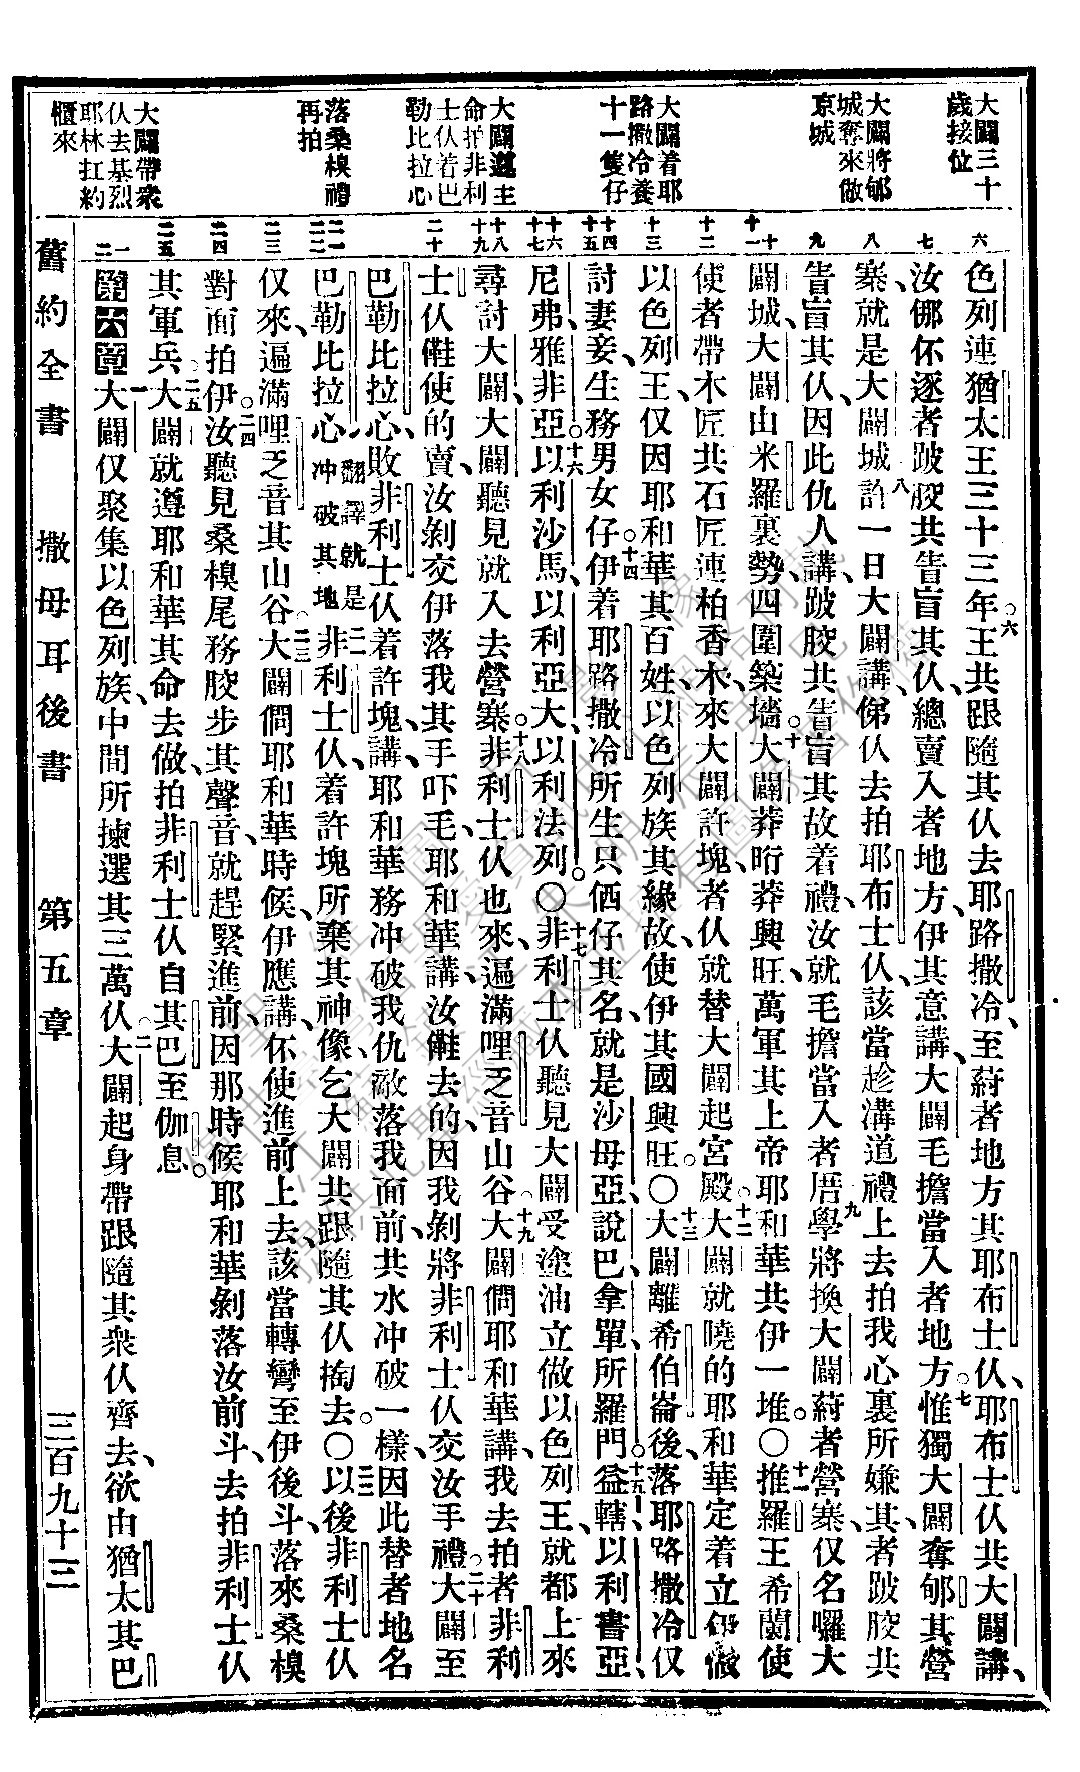 大闢三十
歲接位
大闢將郇
城奪來做
京城
大闢着耶
路撒冷養
十一隻仔
大闢遵主
命拍非利
士仫着巴
勒比拉心
落桑模禮
再拍
大闢帶衆
仫去基烈
耶林扛約
櫃來
六
七
八
九
十
十一
十二
十三
十四
十五
十六
十七
十八
十九
二十
二一
二二
二三
二四
二五
一
二
色列連猶太王三十三年○六王共跟隨其仫去耶路撒冷至蒔者地方其耶布士仫耶布士仫共大闢講
汝㑚伓逐者跛骹共眚盲其仫總賣入者地方伊其意講大闢毛擔當入者地方○七惟獨大闢奪郇其營
寨就是大闢城○八許一日大闢講俤仫去拍耶布士仫該當趁溝道禮上去拍我心裏所嫌其者跛骹共
眚盲其仫因此仇人講跛骹共眚盲其故着禮汝就毛擔當入者厝○九學將換大闢蒔者營寨仅名囉大
闢城大闢由米羅裏勢四圍築墻○十大闢莽晍莽興旺萬軍其上帝耶和華共伊一堆○十一推羅王希蘭使
使者帶木匠共石匠連柏香木來大闢許塊者仫就替大闢起宮殿○十二大闢就曉的耶和華定着立伊做
以色列王仅因耶和華其百姓以色列族其緣故使伊其國興旺○十三大闢離希伯崙後落耶路撒冷仅
討妻妾生務男女仔○十四伊着耶路撒冷所生只俩仔其名就是沙母亞說巴拿單所羅門○十五益轄以利書亞
尼弗雅非亞○十六以利沙馬以利亞大以利法列○十七非利士仫聽見大闢受塗油立做以色列王就都上來
尋討大闢大闢聽見就入去營寨○十八非利士仫也來遍滿哩乏音山谷○十九大闢僩耶和華講我去拍者非利
士仫雖使的賣汝剝交伊落我其手吓毛耶和華講汝雖去的因我剝將非利士仫交汝手禮○二十大闢至
巴勒比拉心敗非利士仫着許塊講耶和華務冲破我仇敵落我面前共水冲破一樣因此替者地名
巴勒比拉心翻譯就是冲破其地○二一非利士仫着許塊所棄其神像乞大闢共跟隨其仫掏去○二二以後非利士仫
仅來遍滿哩乏音其山谷○二三大闢僩耶和華時候伊應講伓使進前上去該當轉彎至伊後斗落來桑模
對面拍伊○二四汝聽見桑模尾務骹步其聲音就趕緊進前因那時候耶和華剝落汝前斗去拍非利士仫
其軍兵○二五大闢就遵耶和華其命去做拍非利士仫自其巴至伽息
第六章 大闢仅聚集以色列族中間所揀選其三萬仫○二大闢起身帶跟隨其衆仫齊去欲由猶太其巴
舊約全書 撒母耳後書 第五章 三百九十三